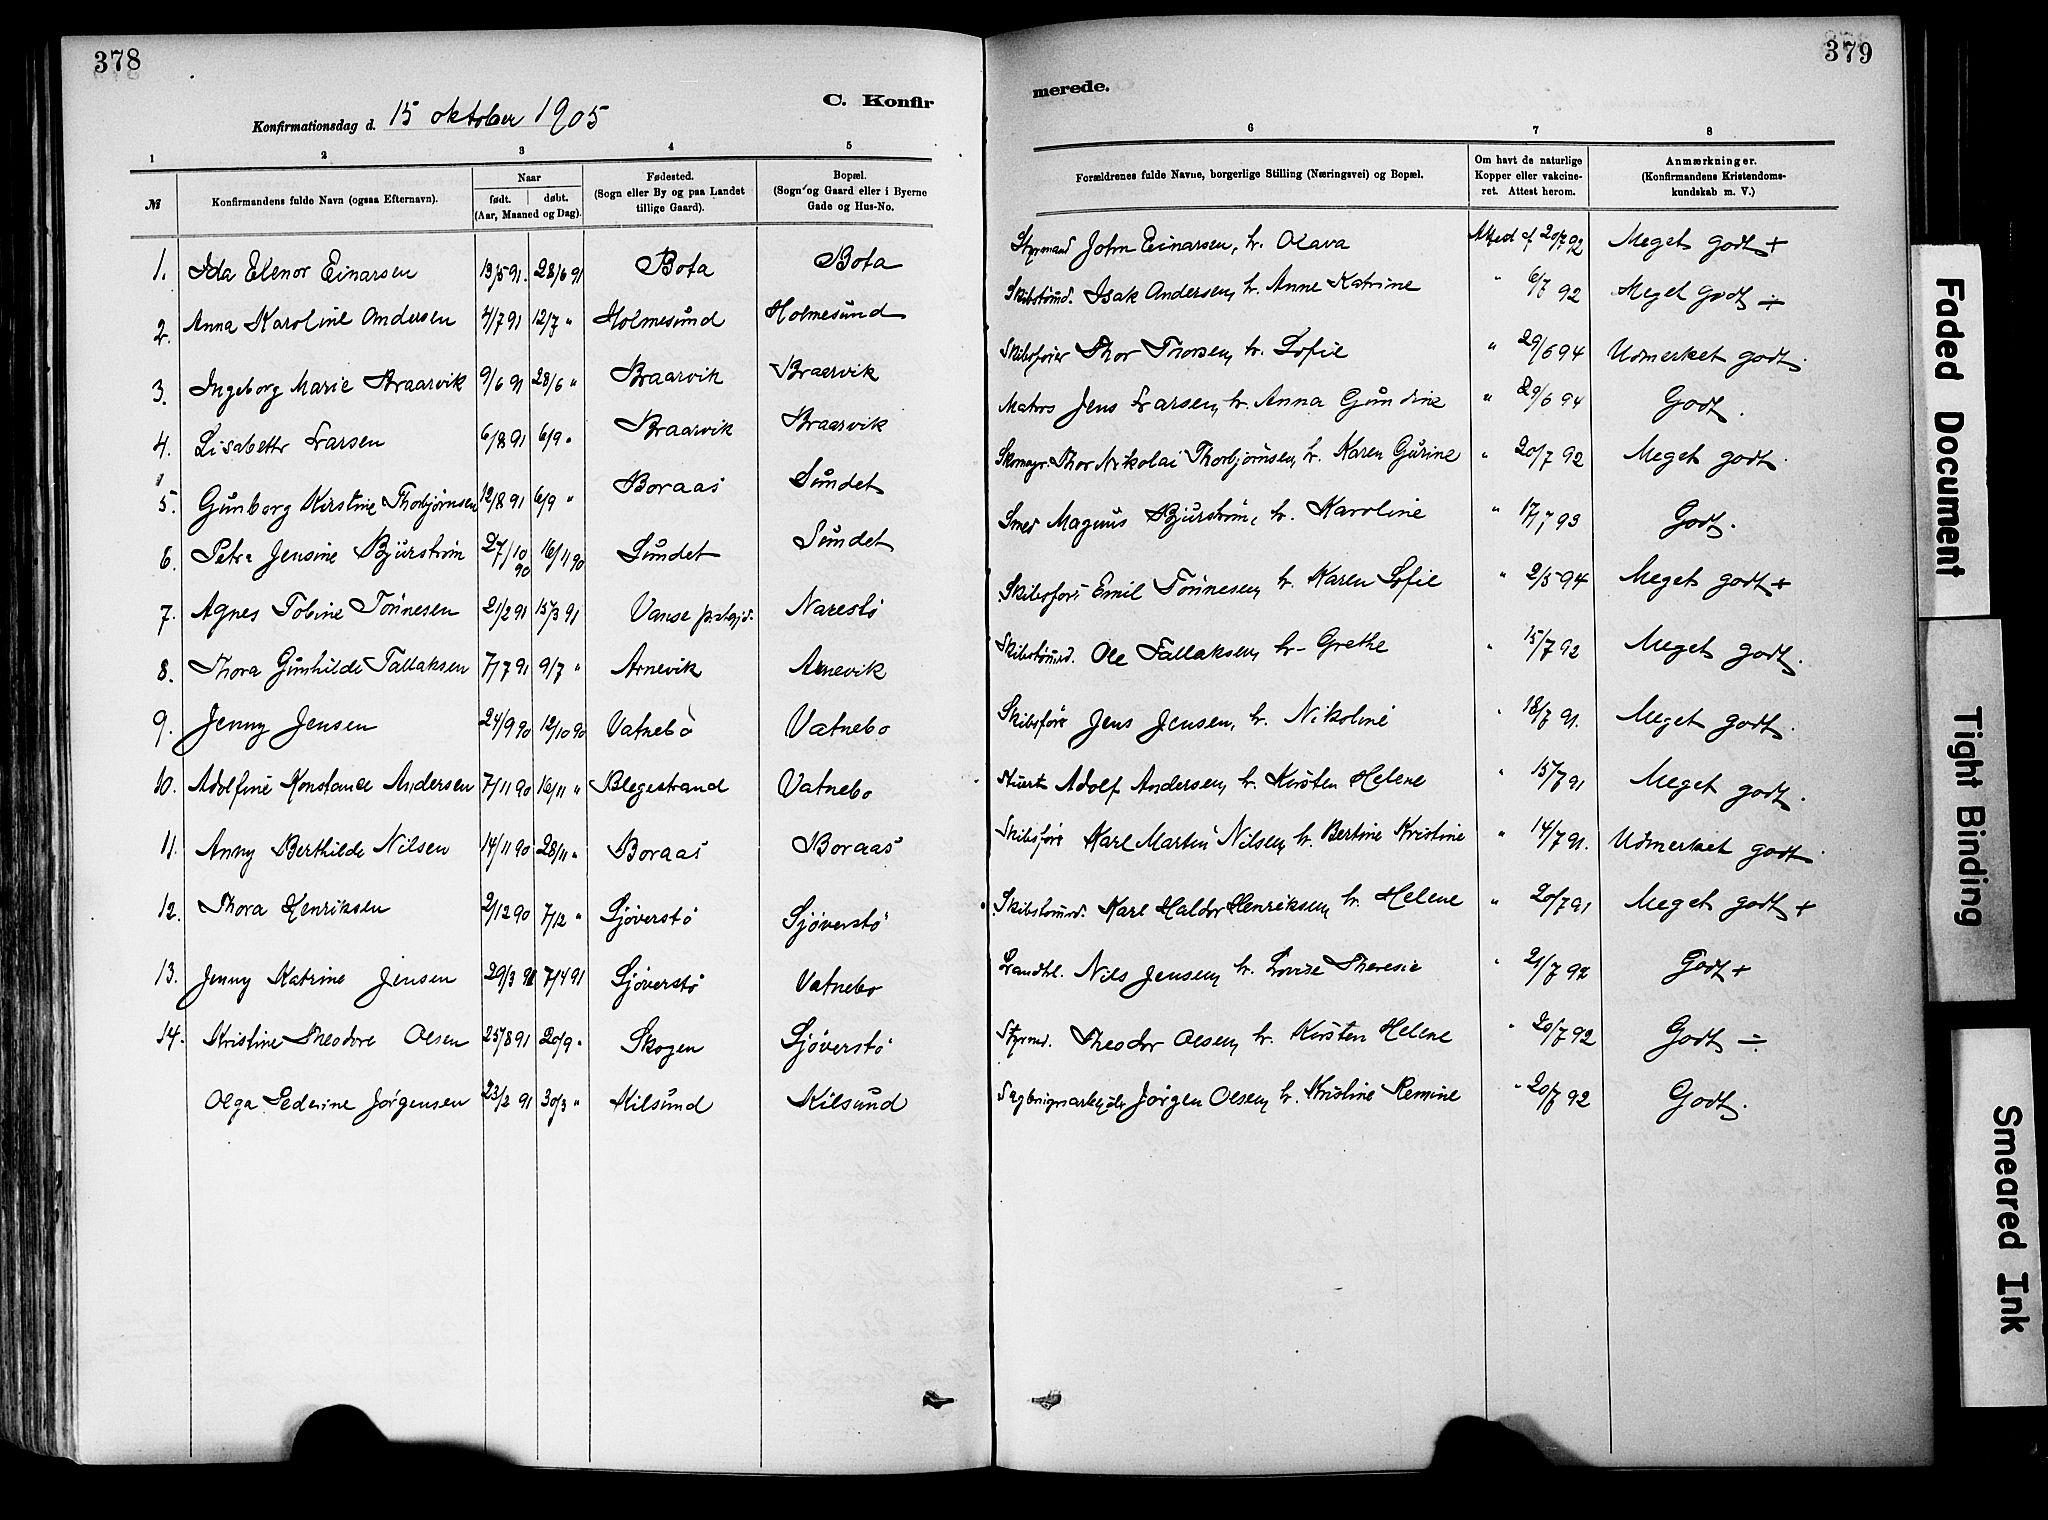 378
379
Konfirmationsdag d. 15 oktober 1905
C. Konfirmerede.
1 2 3 4 5 6 7 8
№ | Konfirmandens fulde Navn (ogsaa Efternavn). | Naar født. døbt. (Aar, Maaned og Dag). | Fødested. (Sogn eller By og paa Landet tillige Gaard). | Bopæl. (Sogn og Gaard eller i Byerne Gade og Hus-No. | Forældrenes fulde Navne, borgerlige Stilling (Næringsvei) og Bopæl. | Om havt de naturlige Kopper eller vakcineret. Attest herom. | Anmærkninger. (Konfirmandens Kristendomskundskab m. V.)
1. Ida Elenor Einarsen 13/5 91. 28/6 91 Bota Bota Styrmand John Einarsen, h. Olava Attest af 20/7 92 Meget godt +
2. Anna Karoline Andersen 4/7 91 12/7 " Holmesund Holmesund Skibstømd. Isak Andersen, h. Anne Katrine " 6/7 92 Meget godt ÷
3. Ingeborg Marie Braarvik 9/6 91 28/6 " Braarvik Braarvik Skibsfører Thor Thorsen, h. Sofie " 29/6 94 Udmerket godt.
4. Lisabeth Larsen 6/8 91 6/9 " Braarvik Braarvik Matros Jens Larsen, h. Anna Gundine " 29/6 94 Godt.
5. Gunborg Kirstine Thorbjørnsen 12/8 91 6/9 " Boraas Sundet Skomagr. Thor Nikolai Thorbjørnsen, h. Karen Gurine " 20/7 92 Meget godt.
6. Petra Jensine Bjurstrøm 27/10 90 16/11 90 Sundet Sundet Smed Magnus Bjurstrøm, h. Karoline " 17/7 93 Godt.
7. Agnes Tobine Tønnesen 21/2 91 15/3 91 Vanse prstgjd. Narestø Skibsfører Emil Tønnesen, h. Karen Sofie " 2/5 94 Meget godt +
8. Thora Gunhilde Tallaksen 7/7 91 9/7 " Arnevik Arnevik Skibstømrd. Ole Tallaksen, h. Grethe " 15/7 92 Meget godt.
9. Jenny Jensen 24/9 90 12/10 90 Vatnebø Vatnebo Skibsfører Jens Jensen, h. Nikoline " 18/7 91. Meget godt.
10. Adolfine Konstance Andersen 7/11 90 16/11 " Blegestrand Vatnebo Stuert Adolf Andersen, h. Kirsten Helene " 15/7 91 Meget godt.
11. Anny Berthilde Nilsen 14/11 90 28/11 " Boraas Boraas Skibsfører Karl Martin Nilsen, h. Bertine Kristine " 14/7 91. Udmerket godt
12. Thora Henriksen 2/12 90 7/12 " Sjøverstø Sjøverstø Skibstømrd. Karl Haldor Henriksen, h. Helene " 20/7 91 Meget godt +
13. Jenny Katrine Jensen 29/3 91 7/4 91 Sjøverstø Vatnebo Landhl. Nils Jensen, h. Lovise Theresie " 21/7 92 Godt +
14. Kristine Theodore Olsen 25/8 91 20/9 " Skogen Sjøverstø Styrmd. Theodor Olsen, h. Kirsten Helene " 20/7 92 Godt ÷
Olga Pederine Jørgensen 23/2 91 30/3 " Kilsund Kilsund Sagbrugsarbejder Jørgen Olsen, h. Kristine Remine " 20/7 92 Godt.
Faded Document
Tight Binding
Smeared Ink